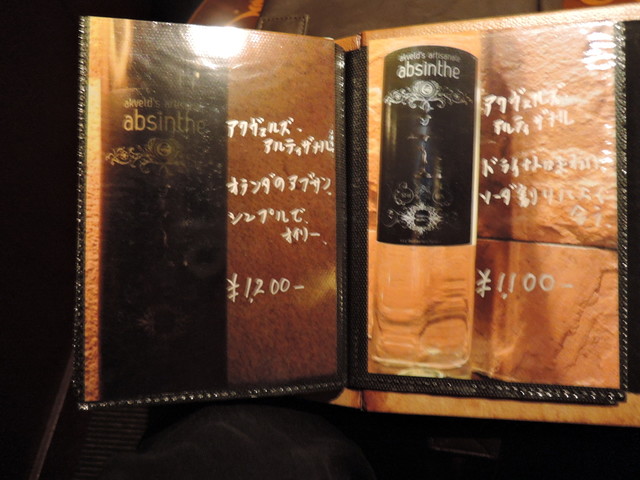 akveld's artisanale
absinthe
アクヴェルズ・
アルティザナル
オランダのアブサン
シンプルで、
オイリー。
¥1,200-
akveld's artisanale
absinthe
アクヴェルズ・
アルティザナル
ソーダ割り
¥1,100-